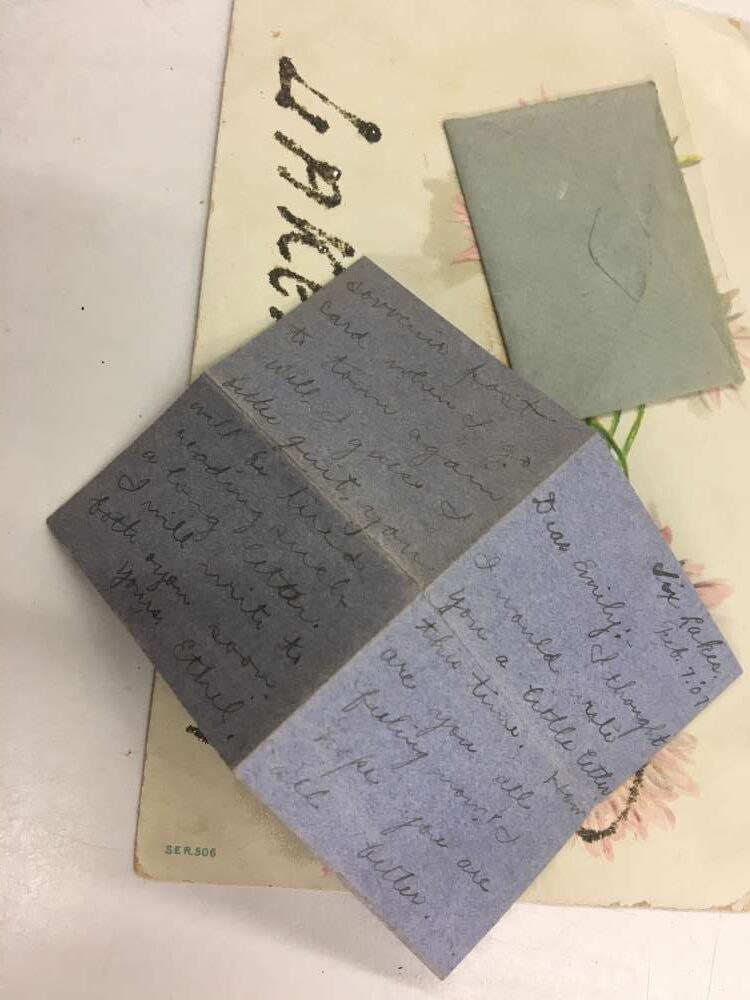 LAKE
SER.506
Six Lakes,
Feb. 7. '07
Dear Emily:-
I thought
I would write
you a little letter
this time. How
are you all
feeling now? I
hope you are
all better.
souvenir post
card when I go
to town again
Well, I guess I
will be tired
reading such
a long letter.
I will write to
both again soon.
Yours,
Ethel.